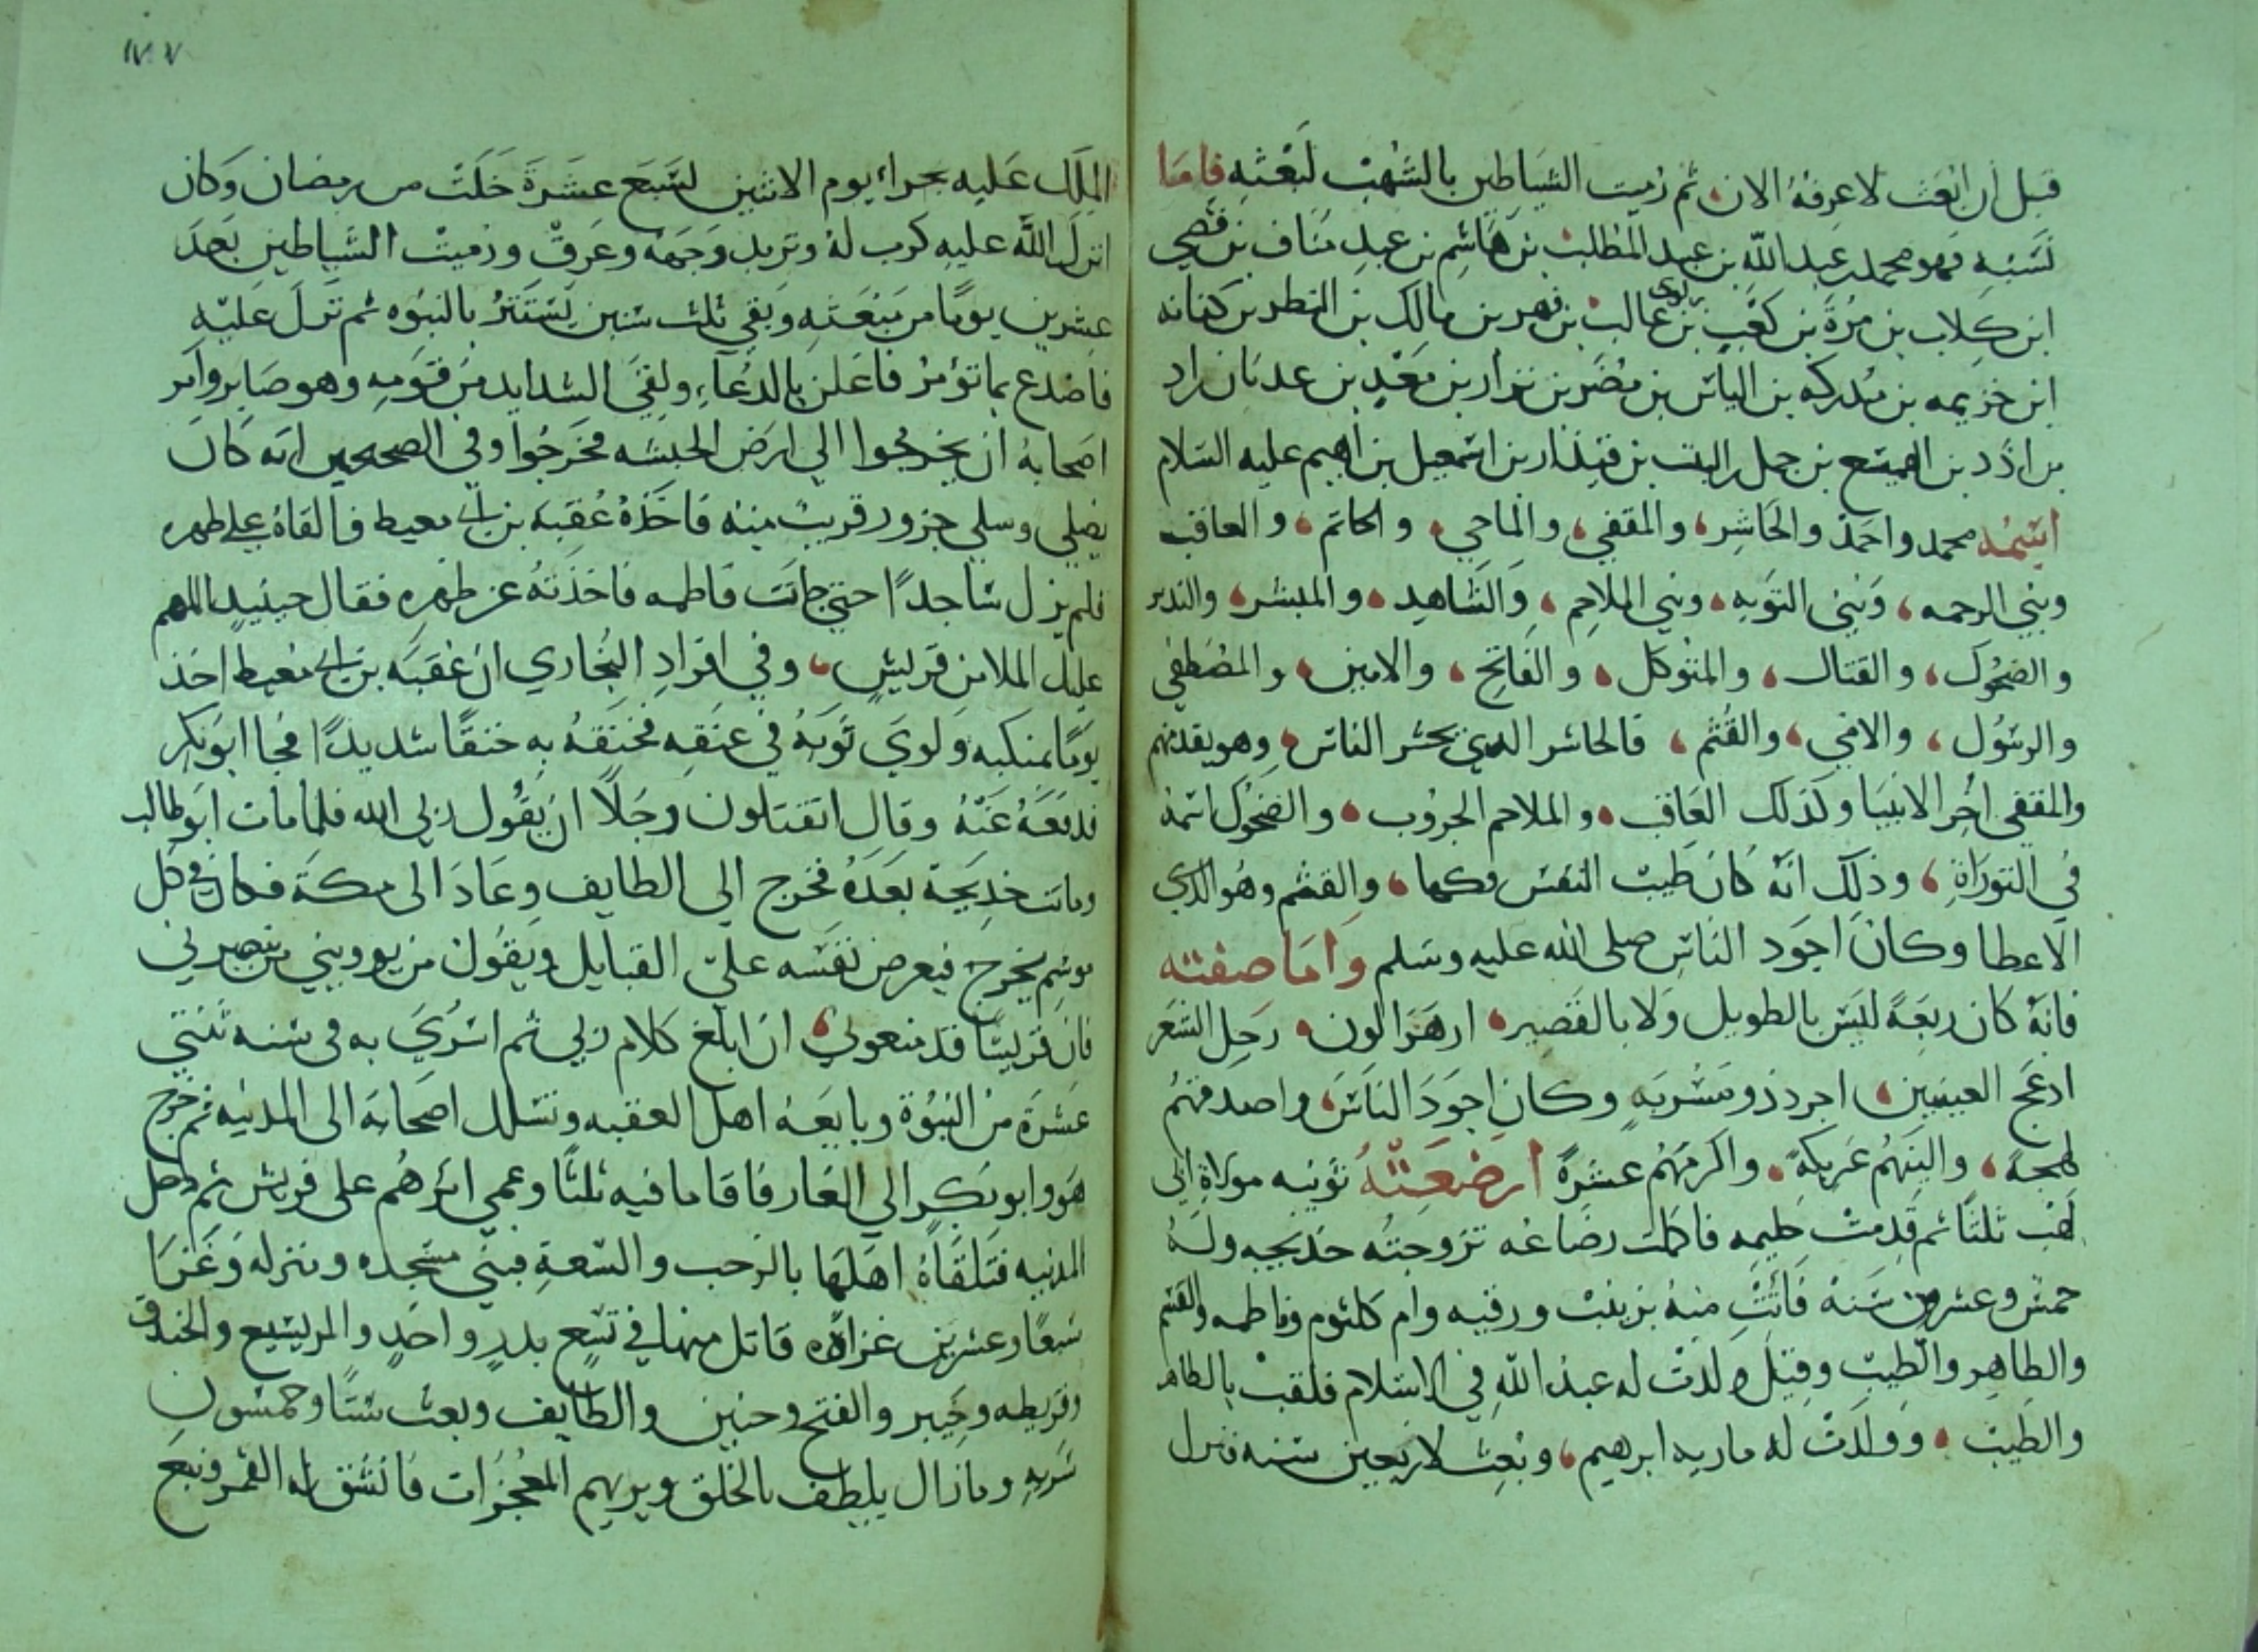 قبل أن ابعث لاعرفه الان ثم رميت الشياطين بالشهب لبعثه فاما
نسبه فهو محمد بن عبد الله بن عبد المطلب بن هاشم بن عبد مناف بن قصي
ابن كلاب بن مرة بن كعب بن لوى بن غالب بن فهر بن مالك بن النضر بن كنانه
ابن خزيمه بن مدركه بن الياس بن مضر بن نزار بن معد بن عدنان
بن ادد بن الهميسع بن حمل بن النبت بن قيذار بن اسمعيل بن ابرهيم عليه السلام
اسمه محمد واحمد والحاشر، والمقفي، والماحي، والخاتم، والعاقب
ونبي الرحمه، ونبي التوبه، ونبي الملاحم، والشاهد، والمبشر، والنذير
والضحوك، والقتال، والمتوكل، والفاتح، والامين، والمصطفى
والرسول، والامي، والقثم، فالحاشر الذي يحشر الناس وهو يقدمهم
والمقفي اخر الانبيا وكذلك العاقب، والملاحم الحروب، والضحوك اسمه
في التوراة، وذلك انه كان طيب النفس فكها، والقثم وهو الذي
الاعطا وكان اجود الناس صلى الله عليه وسلم واما صفته
فانه كان ربعة ليس بالطويل ولا بالقصير، ازهر اللون، رجل الشعر
ادعج العينين، اجرد ذو مسربه وكان اجود الناس، واصدقهم
لهجة، والينهم عريكة، واكرمهم عشرة ارضعته ثويبه مولاة ابي
لهب ثلثا ثم قدمت حليمه فاكملت رضاعه تزوجته خديجه وله
خمس وعشرون سنة فاتت منه بزينب ورقيه وام كلثوم وفاطمه والقسم
والطاهر والطيب وقيل ولدت له عبد الله في الاسلام فلقب بالطاهر
والطيب، وولدت له ماريه ابرهيم، وبعث لاربعين سنه فنزل
الملك عليه بحراء يوم الاثنين لسبع عشرة خلت من رمضان وكان
انزل الله عليه كرب له وتربد وجهه وعرق ورميت الشياطين بعد
عشرين يوما من مبعثه وبقي ثلث سنين يستتر بالنبوه ثم نزل عليه
فاصدع بما تؤمر فاعلن بالدعاء ولقي الشدايد من قومه وهو صابر وامر
اصحابه ان يخرجوا الي ارض الحبشه فخرجوا وفي الصحيحين انه كان
يصلي وسلي جزور قريب منه فاخذه عقبة بن ابي معيط فالقاه على ظهره
فلم يزل ساجدا حتي جات فاطمه فاخذته عن ظهره فقال حينيد اللهم
عليك الملا من قريش، وفي افراد البخاري ان عقبه بن ابي معيط اخذ
يوما بمنكبه ولوي ثوبه في عنقه فخنقه به خنقا شديدا فجا ابو بكر
فدفعه عنه وقال اتقتلون رجلا ان يقول ربي الله فلما مات ابو طالب
وماتت خديجة بعده فخرج الي الطايف وعاد الى مكة فكان في كل
موسم يخرج فيعرض نفسه علي القبايل ويقول من يوويني من ينصرني
فان قريشا قد منعوني ان ابلغ كلام ربي ثم اسري به في سنه ثنتي
عشرة من النبوة وبايعه اهل العقبه وتسلل اصحابه الى المدينه ثم خرج
هو وابو بكر الي الغار فاقاما فيه ثلثا وعمي اثرهم على قريش ثم دخل
المدينه فتلقاه اهلها بالرحب والسعة فبني مسجده ومنزله وغزا
سبعا وعشرين غزاة قاتل منها في تسع بدر واحد والمريسيع والخندق
وقريظه وخيبر والفتح وحنين والطايف وبعث ستا وخمسون
سريه وما زال يلطف بالخلق ويريهم المعجزات فانشق له القمر ونبع